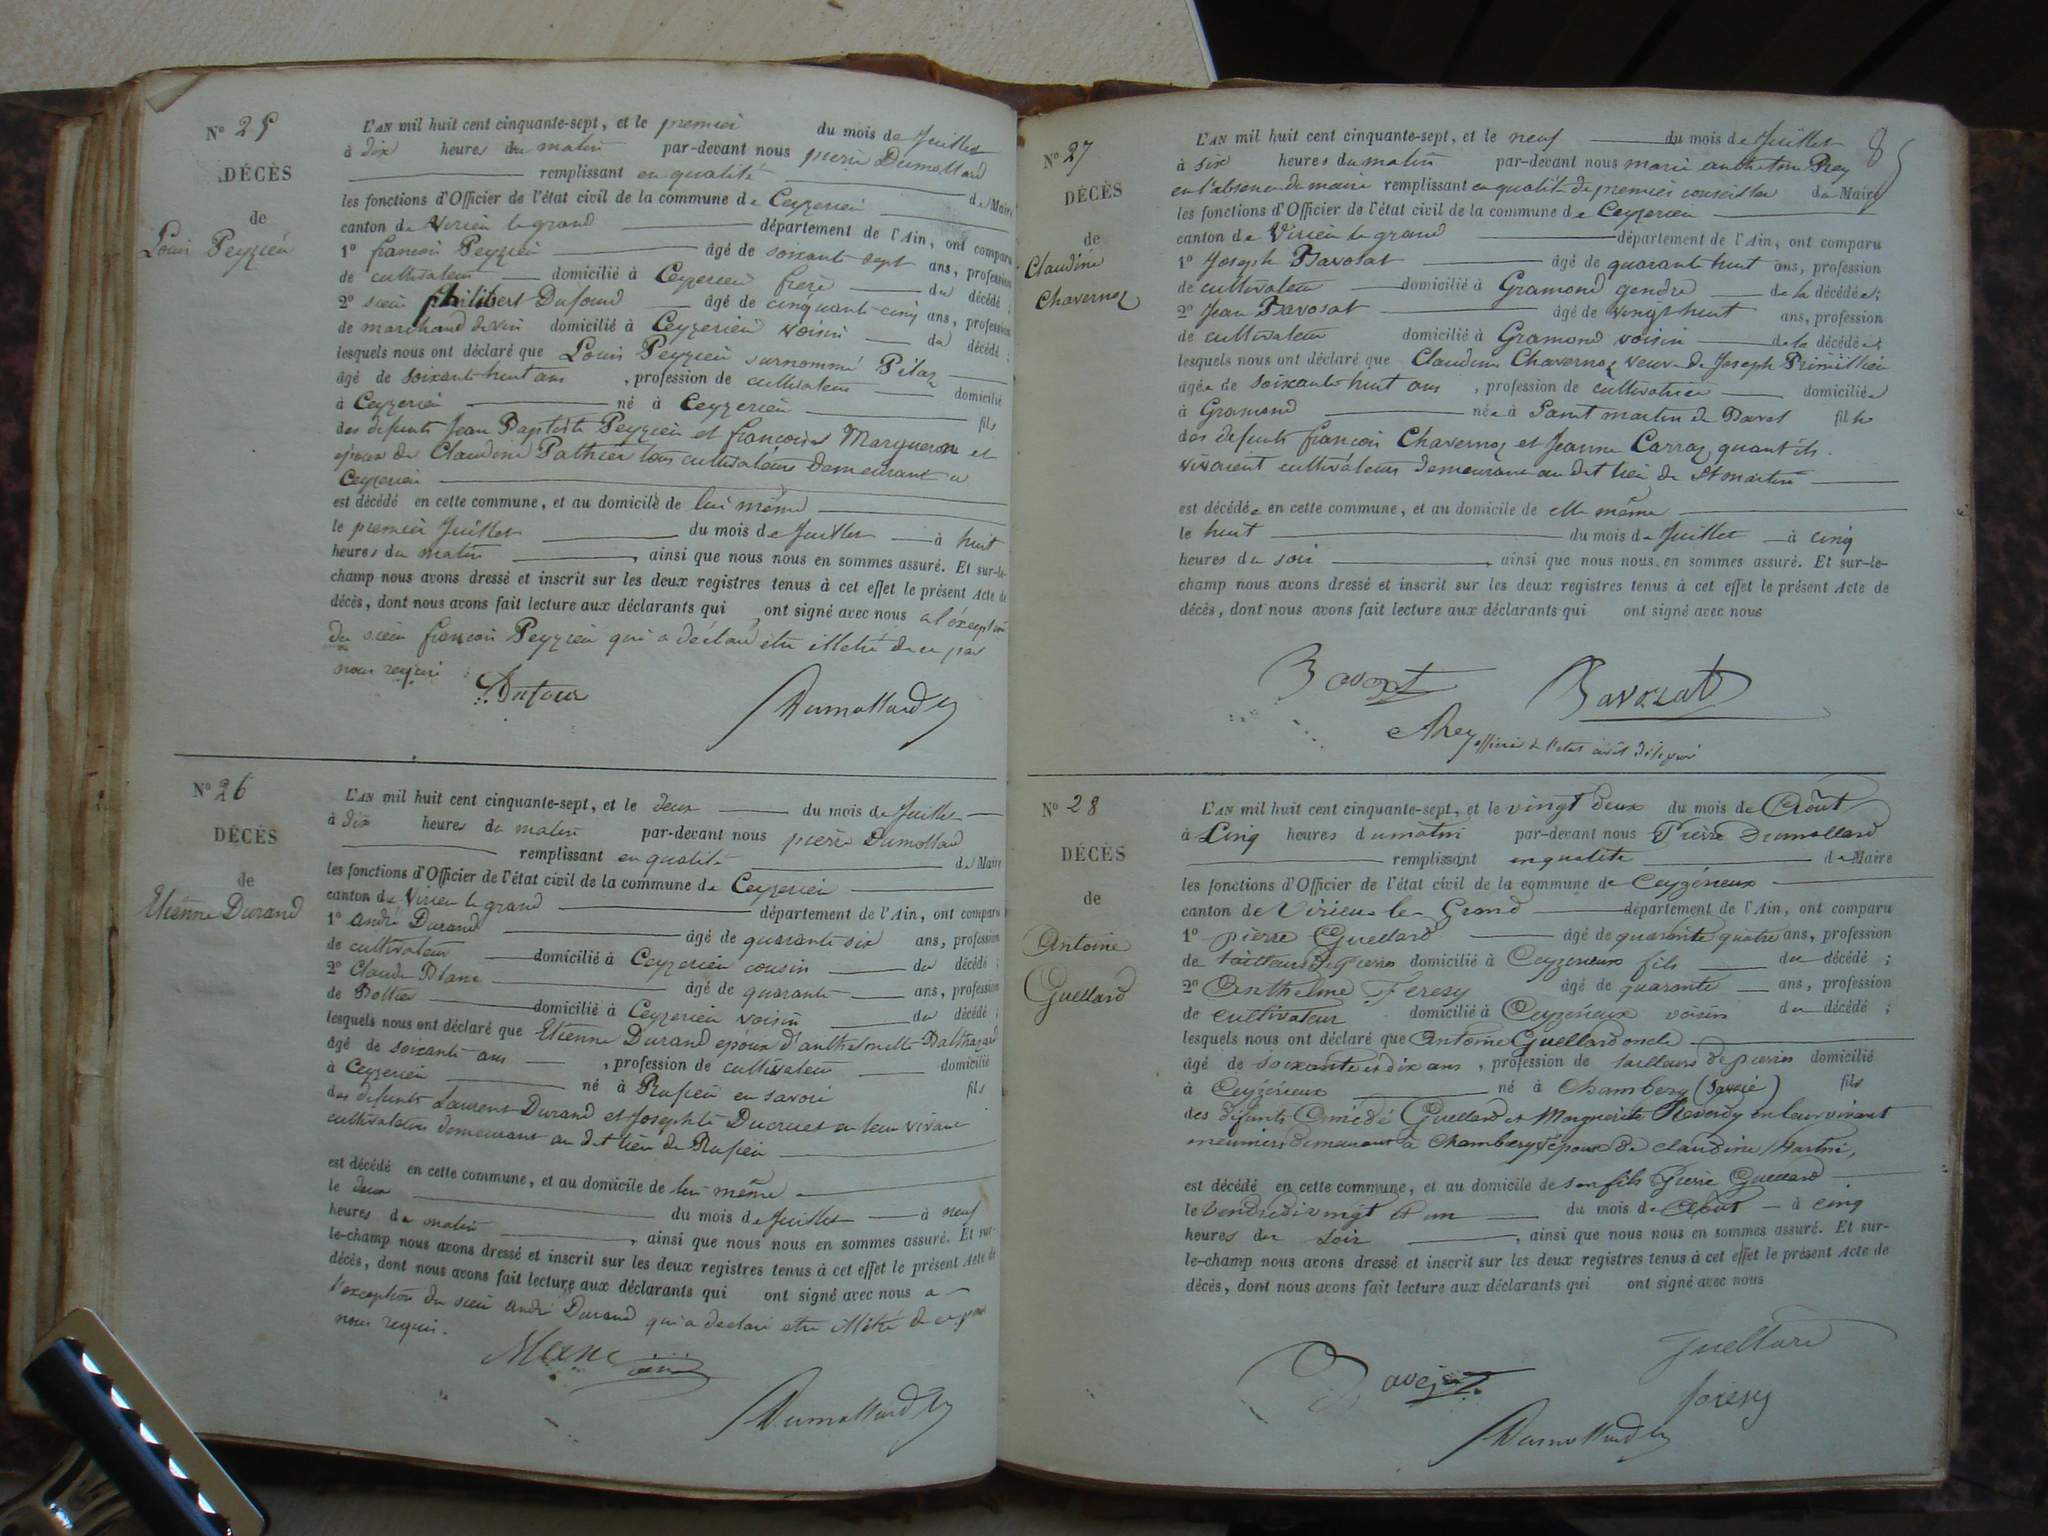 Nº 25
DÉCÈS
de
Louis Peyzieu
L'AN mil huit cent cinquante-sept, et le premier du mois de Juillet
à dix heures du matin par-devant nous pierre Dumollard
remplissant en qualité de Maire
les fonctions d'Officier de l'état civil de la commune de Ceyzerieu
canton de Virieu le grand département de l'Ain, ont comparu
1º françois Peyzieu âgé de soixante sept ans, profession
de cultivateur domicilié à Ceyzerieu frère du décédé ;
2º sieur philibert Dufour âgé de cinquante-cinq ans, profession
de marchand de vin domicilié à Ceyzerieu voisin du décédé ;
lesquels nous ont déclaré que Louis Peyzieu surnommé
âgé de soixante huit ans , profession de cultivateur domicilié
à Ceyzerieu né à Ceyzerieu fils
des defunts Jean Baptiste Peyzieu et françoise Margueron et
époux de Claudine Pathier tous cultivateurs demeurant a
Ceyzerieu
est décédé en cette commune, et au domicile de lui même
le premier Juillet du mois de Juillet à huit
heures du matin , ainsi que nous nous en sommes assuré. Et sur-le-
champ nous avons dressé et inscrit sur les deux registres tenus à cet effet le présent Acte de
décès, dont nous avons fait lecture aux déclarants qui ont signé avec nous a l'éxception
du sieur françois Peyzieu qui a déclaré être illetré de ce par
nous requis
Dufour
Dumollard
Nº 26
DÉCÈS
de
Etienne Durand
L'AN mil huit cent cinquante-sept, et le deux du mois de Juillet
à dix heures du matin par-devant nous pierre Dumollard
remplissant en qualité de Maire
les fonctions d'Officier de l'état civil de la commune de Ceyzerieu
canton de Virieu le grand département de l'Ain, ont comparu
1º andré Durand âgé de quarante six ans, profession
de cultivateur domicilié à Ceyzerieu cousin du décédé ;
2º Claude Blanc âgé de quarante ans, profession
de Bottier domicilié à Ceyzerieu voisin du décédé ;
lesquels nous ont déclaré que Etienne Durand époux d'anthelmette Balthazard
âgé de soixante ans , profession de cultivateur domicilié
à Ceyzerieu né à Rufieu en savoie fils
des defunts Laurent Durand et Josephte Ducruet en leur vivant
cultivateurs demeurant au dit lieu de Rufieu
est décédé en cette commune, et au domicile de lui même
le deux du mois de Juillet à neuf
heures du matin , ainsi que nous nous en sommes assuré. Et sur-
le-champ nous avons dressé et inscrit sur les deux registres tenus à cet effet le présent Acte de
décès, dont nous avons fait lecture aux déclarants qui ont signé avec nous a
l'exception du sieur andré Durand qui a declaré etre illétré de ce par
nous requis.
Blanc
Dumollard
85
Nº 27
DÉCÈS
de
Claudine
Chavernoz
L'AN mil huit cent cinquante-sept, et le neuf du mois de Juillet
à six heures du matin par-devant nous marie anthelme Rey
en l'absence du maire remplissant en qualité de premier conseiller de Maire
les fonctions d'Officier de l'état civil de la commune de Ceyzerieu
canton de Virieu le grand département de l'Ain, ont comparu
1º Joseph Bavosat âgé de quarante huit ans, profession
de cultivateur domicilié à Gramond gendre de la décédée;
2º Jean Bavosat âgé de vingt huit ans, profession
de cultivateur domicilié à Gramond voisin de la décédée;
lesquels nous ont déclaré que Claudine Chavernoz veuve de Joseph Primillieu
âgée de soixante huit ans , profession de cultivatrice domiciliée
à Gramond née à Saint martin de Bavel fille
des defunts françois Chavernoz et Jeanne Carraz quant ils
vivaient cultivateurs demeurant au dit lieu de St martin
est décédée en cette commune, et au domicile de elle même
le huit du mois de Juillet à cinq
heures du soir , ainsi que nous nous en sommes assuré. Et sur-le-
champ nous avons dressé et inscrit sur les deux registres tenus à cet effet le présent Acte de
décès, dont nous avons fait lecture aux déclarants qui ont signé avec nous
Bavozat
Rey officier de l'etat civil
Nº 28
DÉCÈS
de
Antoine
Guellard
L'AN mil huit cent cinquante-sept, et le vingt deux du mois de Août
à Cinq heures du matin par-devant nous Pierre Dumollard
remplissant en qualité de Maire
les fonctions d'Officier de l'état civil de la commune de Ceyzérieux
canton de Virieu le Grand département de l'Ain, ont comparu
1º pierre Guellard âgé de quarante quatre ans, profession
de tailleur de pierres domicilié à Ceyzerieux fils du décédé ;
2º Anthelme Féresy âgé de quarante ans, profession
de cultivateur domicilié à Ceyzérieux voisin du décédé ;
lesquels nous ont déclaré que Antoine Guellard
âgé de soixante et dix ans , profession de tailleurs de pierres domicilié
à Ceyzérieux né à Chambery (Savoie) fils
des défunts Amédé Guellard et Marguerite Reverdy en leur vivant
meuniers demeurant à Chambery époux de claudine Martin,
est décédé en cette commune, et au domicile de son fils Pierre Guellard
le Vendredi vingt et un du mois de Août à cinq
heures du soir , ainsi que nous nous en sommes assuré. Et sur-
le-champ nous avons dressé et inscrit sur les deux registres tenus à cet effet le présent Acte de
décès, dont nous avons fait lecture aux déclarants qui ont signé avec nous
guellard
Dumollard